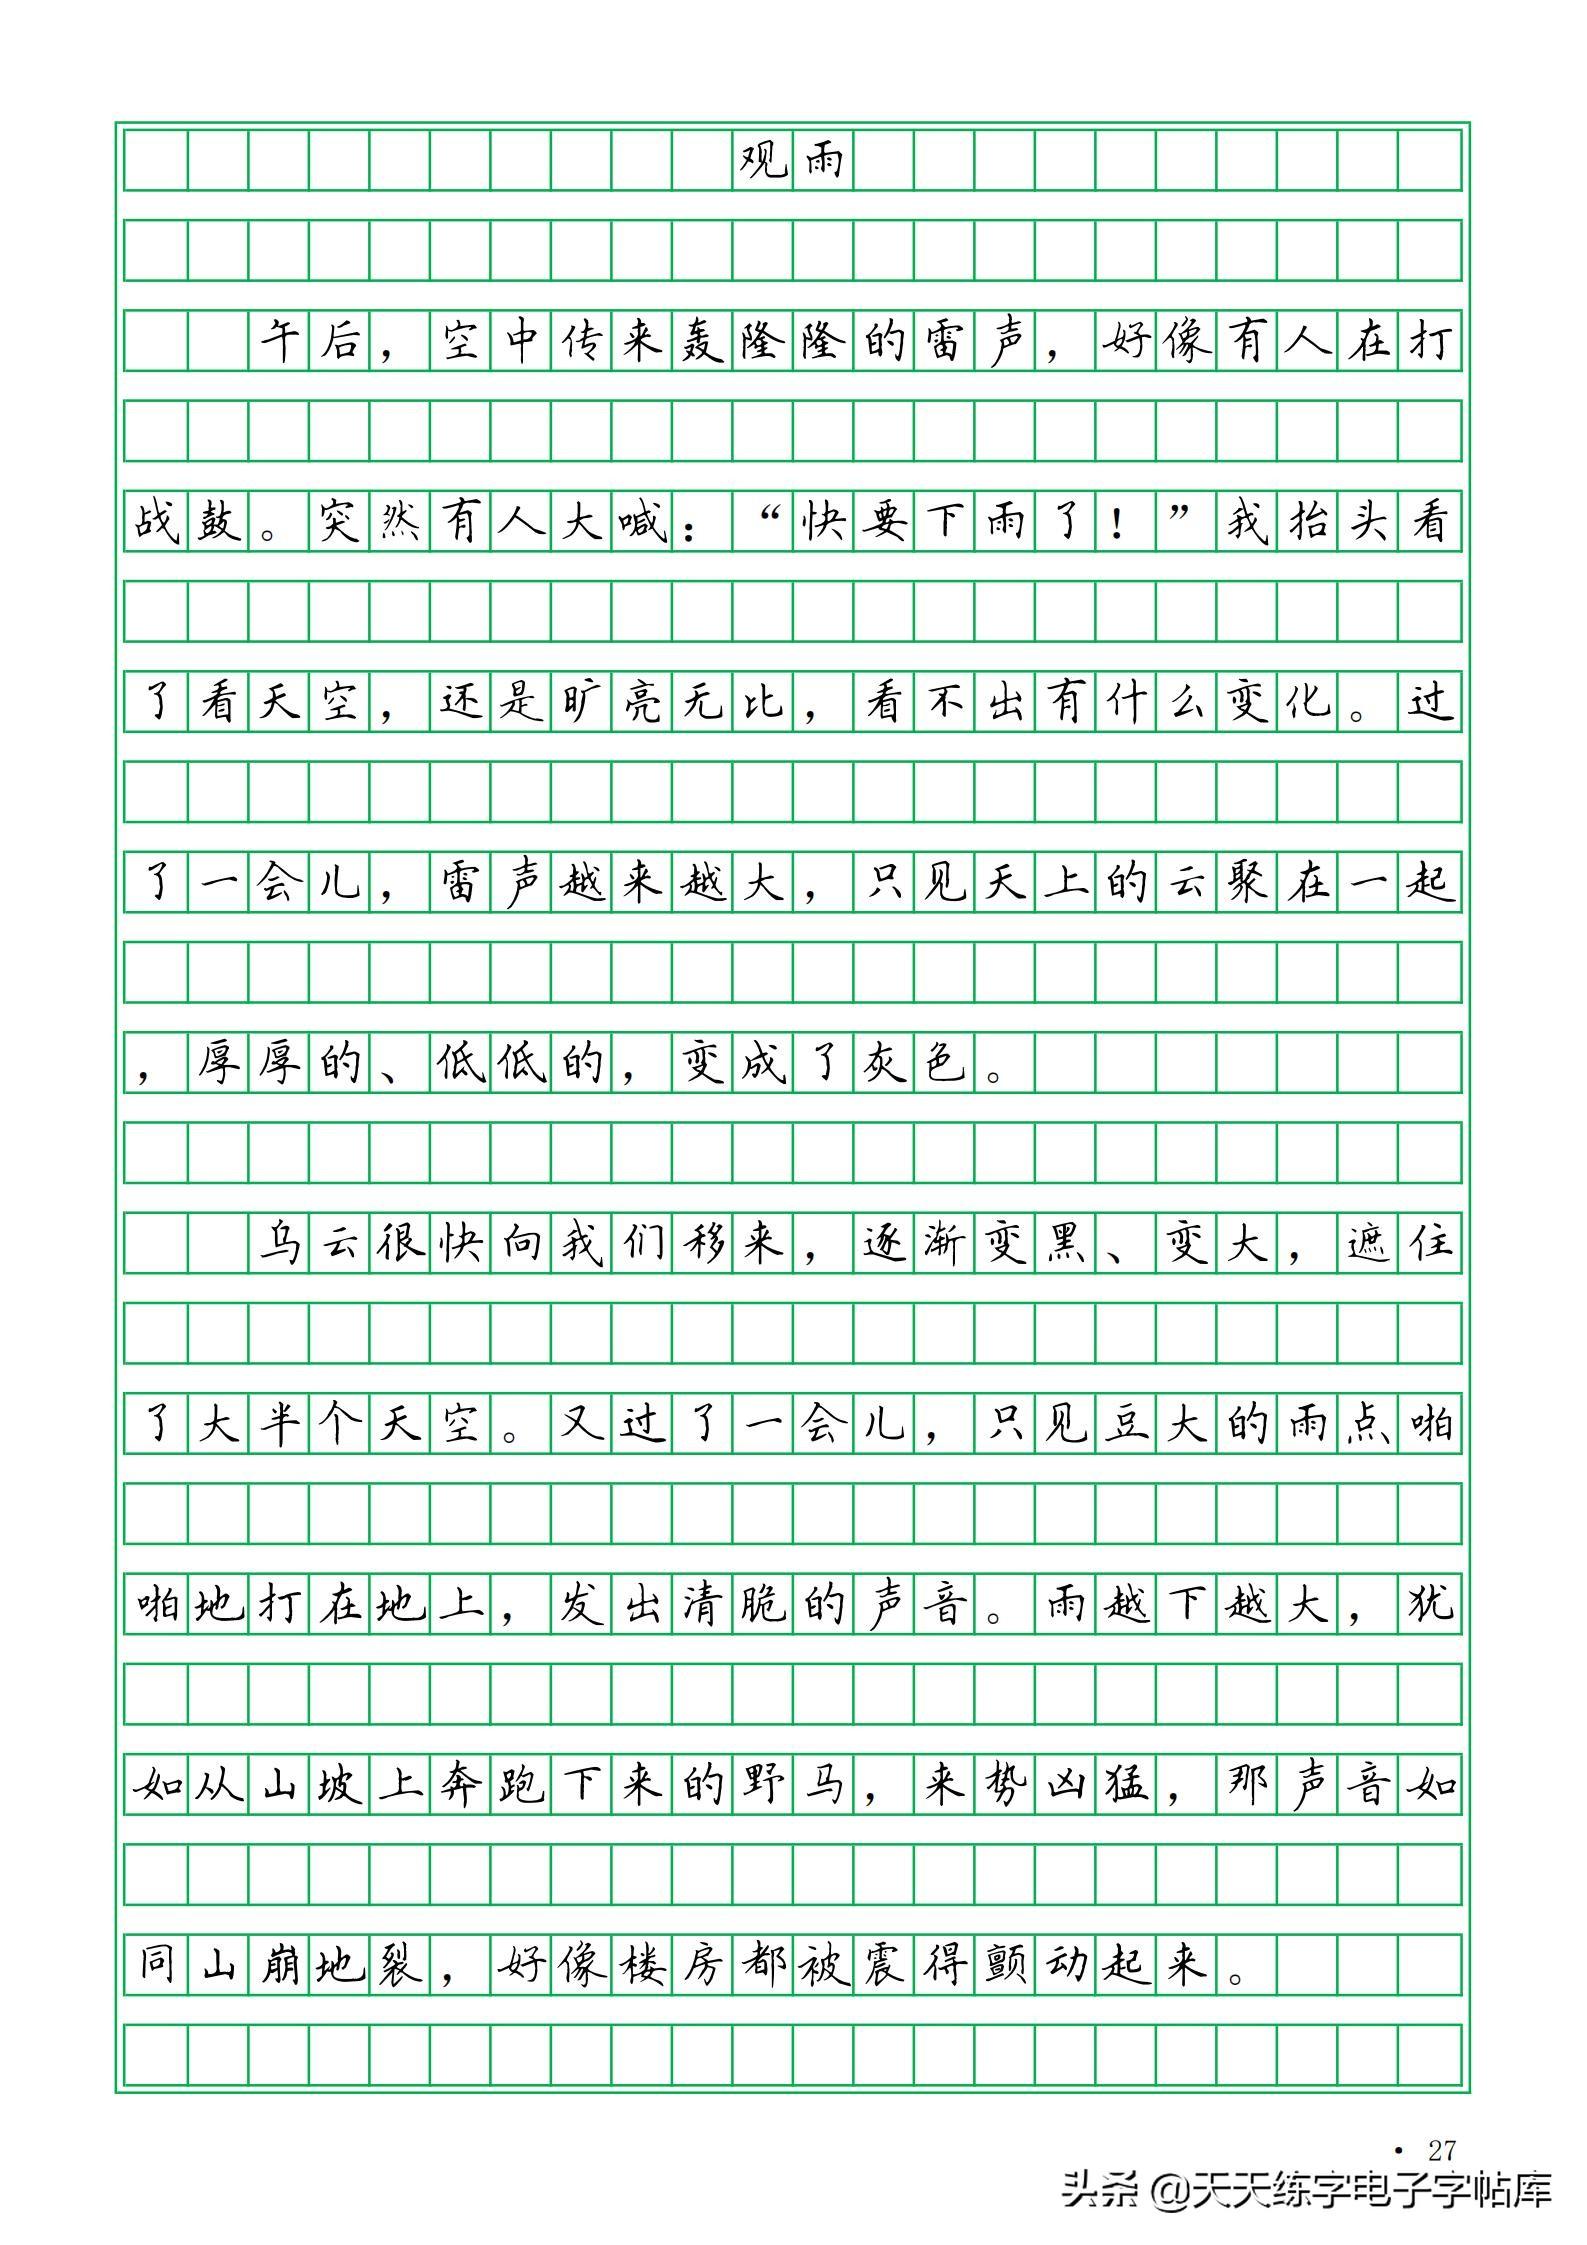 观雨
午后，空中传来轰隆隆的雷声，好像有人在打
战鼓。突然有人大喊：“快要下雨了！”我抬头看
了看天空，还是旷亮无比，看不出有什么变化。过
了一会儿，雷声越来越大，只见天上的云聚在一起
，厚厚的、低低的，变成了灰色。
乌云很快向我们移来，逐渐变黑、变大，遮住
了大半个天空。又过了一会儿，只见豆大的雨点啪
啪地打在地上，发出清脆的声音。雨越下越大，犹
如从山坡上奔跑下来的野马，来势凶猛，那声音如
同山崩地裂，好像楼房都被震得颤动起来。
· 27
头条 @天天练字电子字帖库